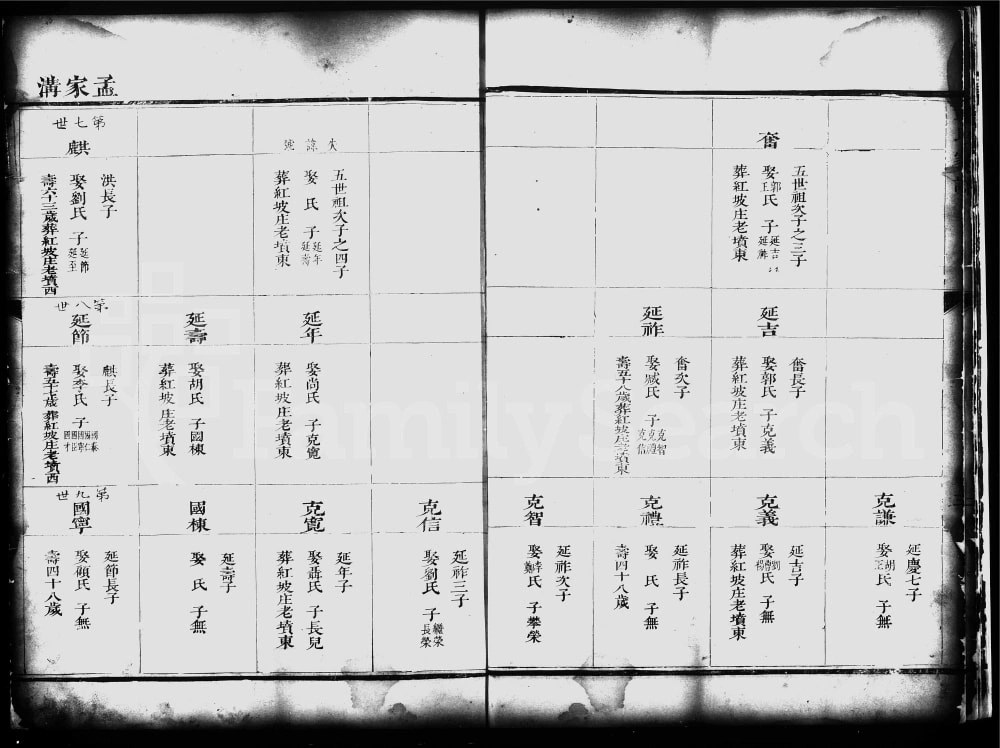 奮
五世祖次子之三子
娶郭王氏 子延吉延祚
葬紅坡庄老墳東
失諱號
五世祖次子之四子
娶 氏 子延年延壽
葬紅坡庄老墳東
孟家溝
第七世
麒
洪長子
娶劉氏 子延節延至
壽六十三歲葬紅坡庄老墳西
延吉
奮長子
娶郭氏 子克義
葬紅坡庄老墳東
延祚
奮次子
娶臧氏 子克智克禮克信
壽五十八歲葬紅坡庄老墳東
延年
娶尚氏 子克寬
葬紅坡庄老墳東
延壽
娶胡氏 子國棟
葬紅坡庄老墳東
第八世
延節
麒長子
娶李氏 子
壽五十七歲葬紅坡庄老墳西
克謙
延慶七子
娶胡王氏 子無
克義
延吉子
娶劉曹楊氏 子無
葬紅坡庄老墳東
克禮
延祚長子
娶 氏 子無
壽四十八歲
克智
延祚次子
娶李鄭氏 子攀榮
克信
延祚三子
娶劉氏 子繼榮長榮
克寬
延年子
娶聶氏 子長兒
葬紅坡庄老墳東
國棟
延壽子
娶 氏 子無
第九世
國寧
延節長子
娶顧氏 子無
壽四十八歲
FamilySearch